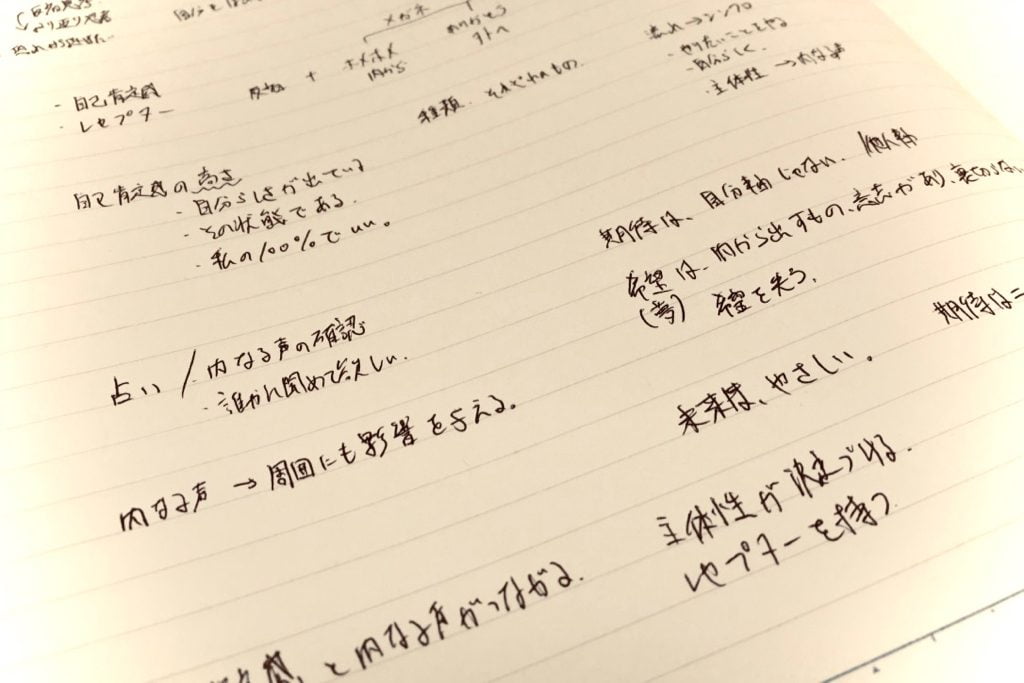 メガネ
ありがとう
外へ
・自己肯定感
・レセプター
+ ホメホメ
内から
種類. それぞれもの.
→ シンプル
・やりたいことをやる
・自分らしく.
・主体性 → 内なる声
自己肯定感の高さ
・自分らしさが出ている
・その状態である.
・私の100%でいい。
期待は、自分軸じゃない. 他人軸
希望は、内から出すもの、意志があり、裏切らない
(夢) 希望を失う.
占い / 内なる声の確認
・誰かに認めて欲しい.
期待は=
未来は、やさしい。
内なる声 → 周囲にも影響を与える。
主体性が決まづける.
レセプターを持つ
と内なる声がつながる.